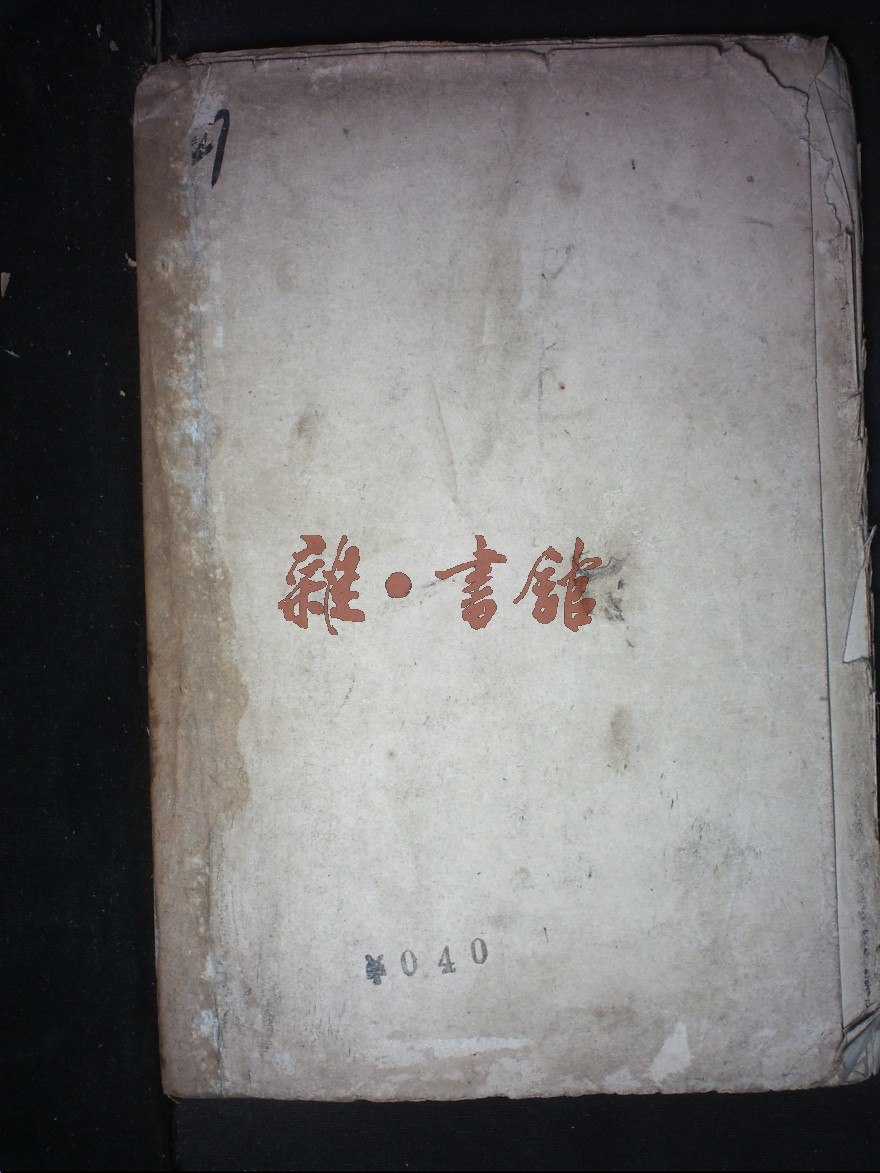 雜·書館
¥040